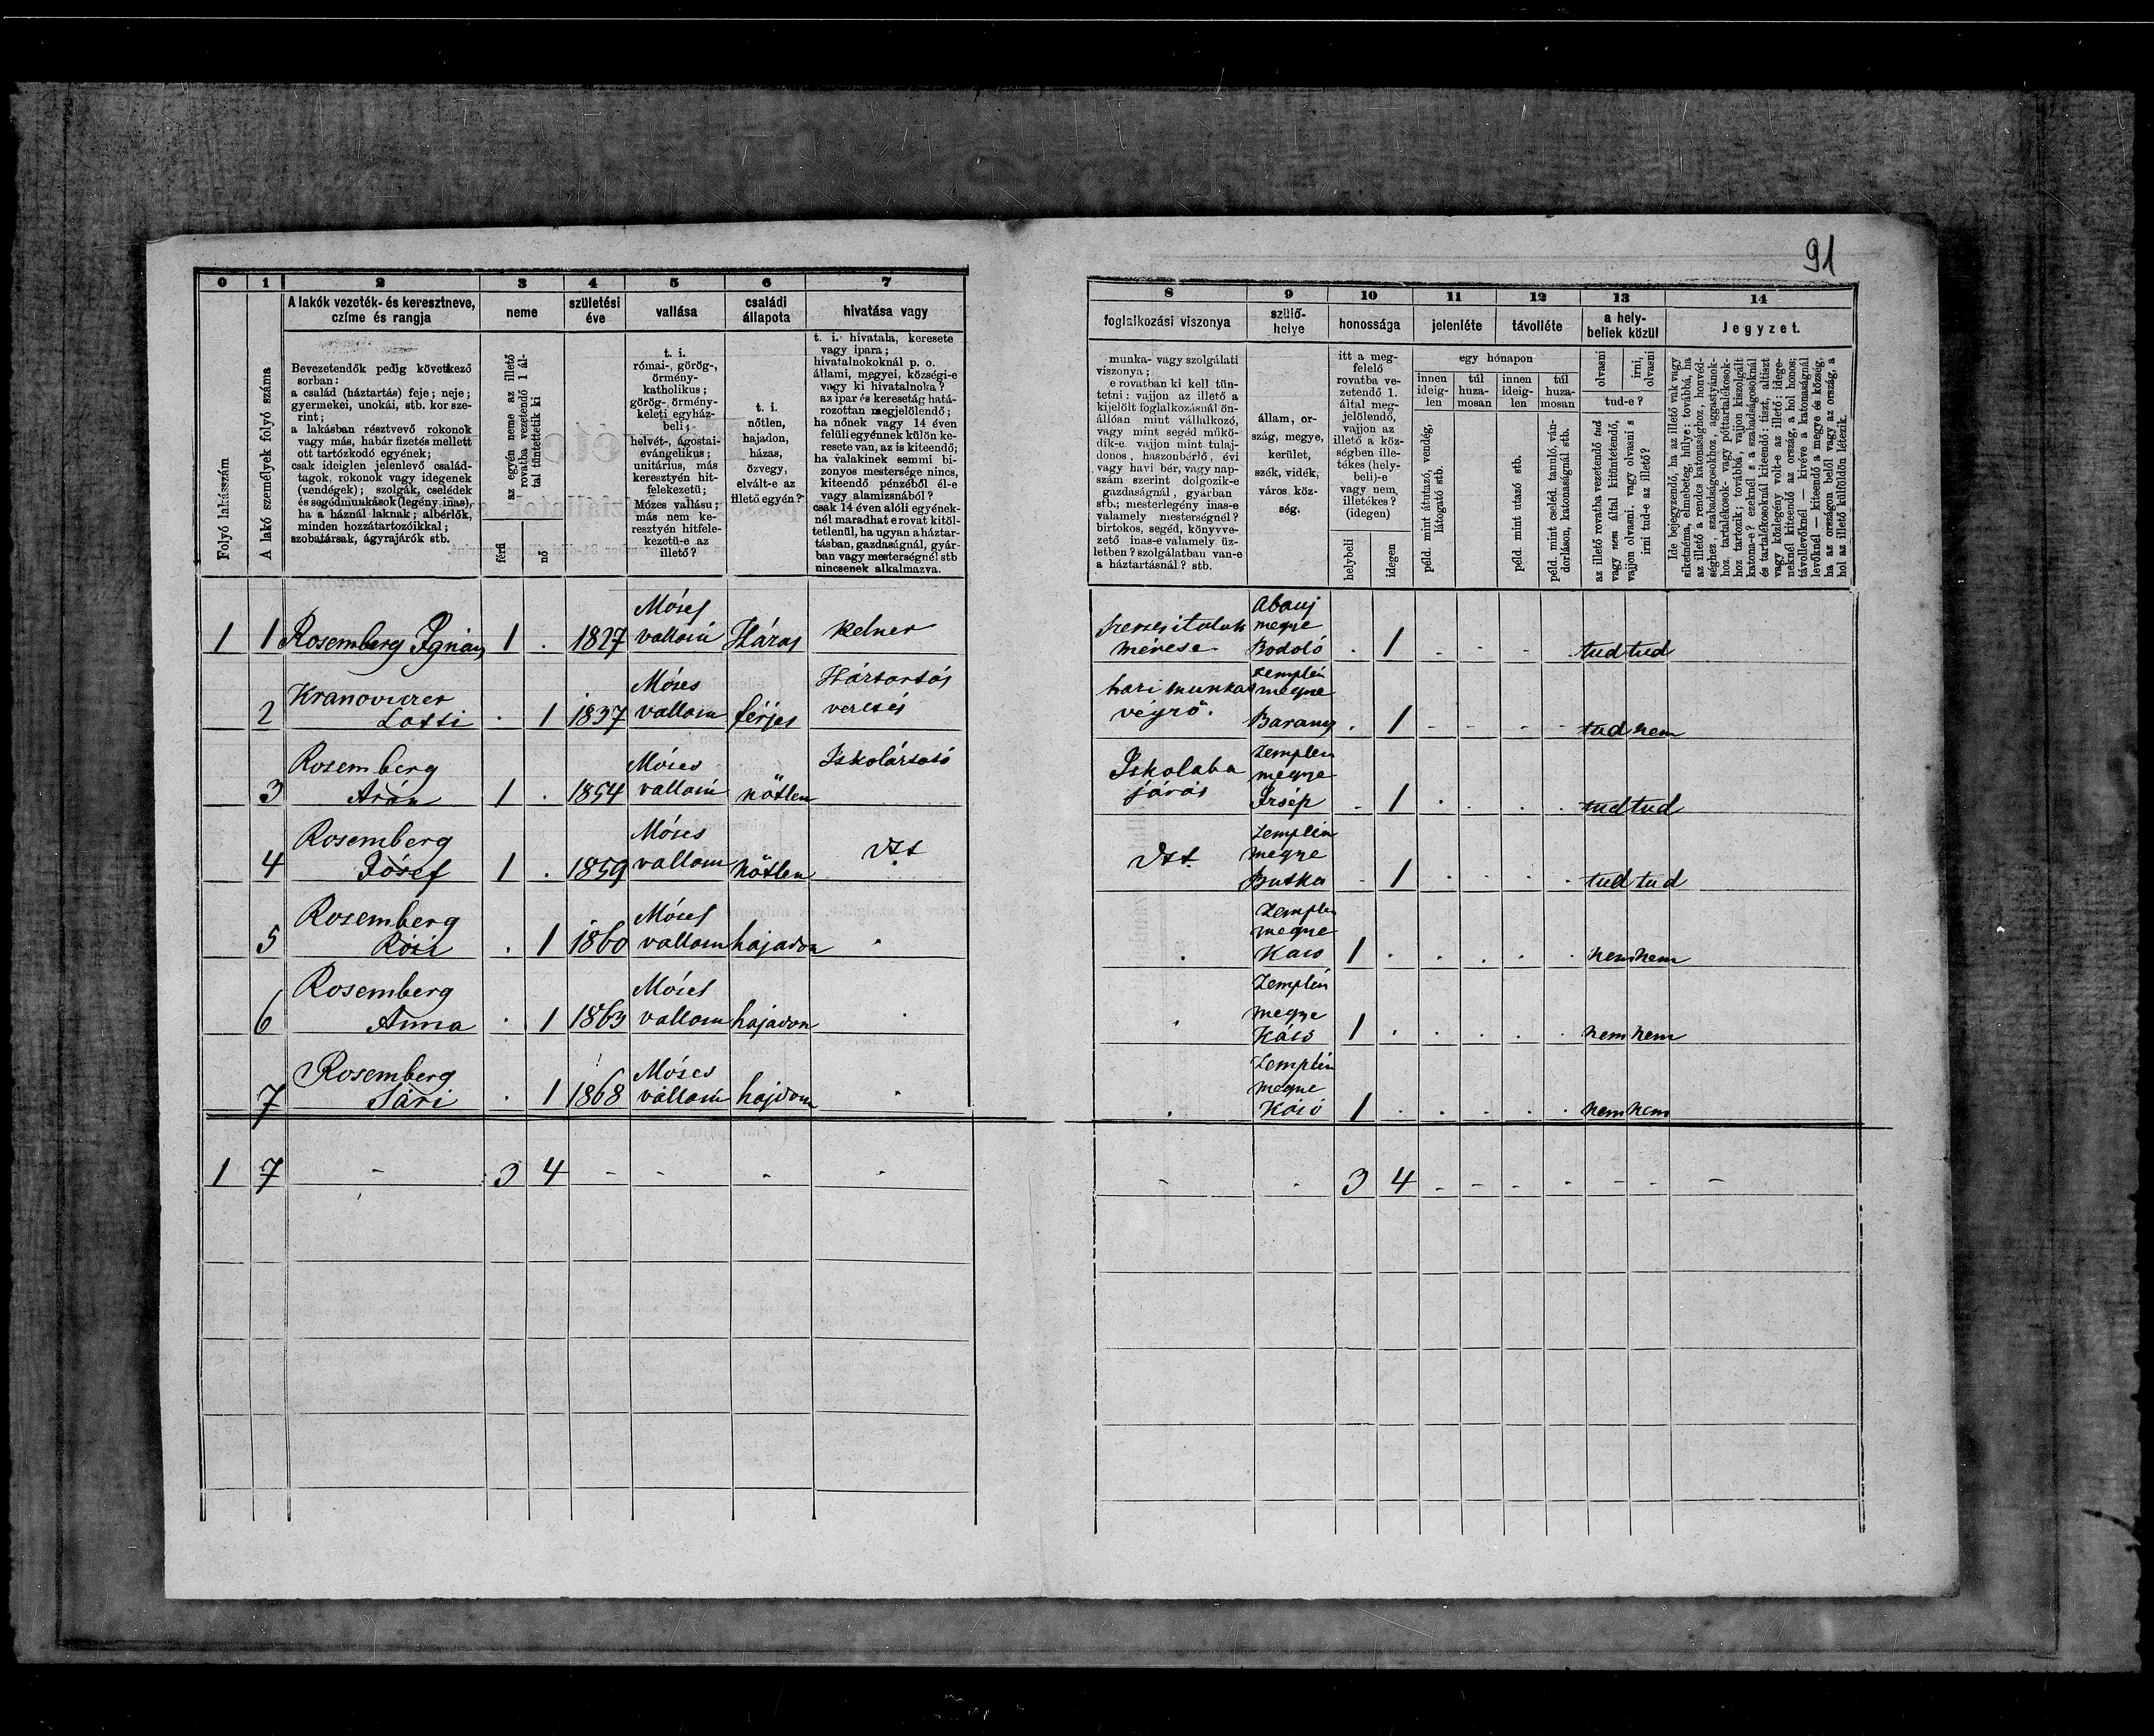 91
0 1 2 3 4 5 6 7
A lakók vezeték- és keresztneve,
czíme és rangja
neme
születési
éve
vallása
családi
állapota
hivatása vagy
Folyó lakásszám
A lakó személyek folyó száma
Bevezetendők pedig következő
sorban:
a család (háztartás) feje; neje;
gyermekei, unokái, stb. kor sze-
rint;
a lakásban résztvevő rokonok
vagy más, habár fizetés mellett
ott tartózkodó egyének;
csak ideiglen jelenlevő család-
tagok, rokonok vagy idegenek
(vendégek); szolgák, cselédek
és segédmunkások (legény, inas),
ha a háznál laknak; albérlők,
minden hozzátartozóikkal;
szobatársak, ágyrajárók stb.
az egyén neme az illető
rovatba vezetendő 1 ál-
tal tüntettetik ki
férfi
nő
t. i.
római-, görög-,
örmény-
katholikus;
görög-, örmény-
keleti egyház-
beli;
helvét-, ágostai-
evángelikus;
unitárius, más
keresztyén hit-
felekezetű;
Mózes vallásu;
más nem ke-
resztyén hitfele-
kezetű-e az
illető?
t. i.
nőtlen,
hajadon,
házas,
özvegy,
elvált-e az
illető egyén?
t. i. hivatala, keresete
vagy ipara;
hivatalnokoknál p. o.
állami, megyei, községi-e
vagy ki hivatalnoka?
az ipar és keresetág hatá-
rozottan megjelölendő;
ha nőnek vagy 14 éven
felüli egyénnek külön ke-
resete van, az is kiteendő;
ha valakinek semmi bi-
zonyos mestersége nincs,
kiteendő pénzéből él-e
vagy alamizsnából?
csak 14 éven alóli egyének-
nél maradhat e rovat kitöl-
tetlenül, ha ugyan a háztar-
tásban, gazdaságnál, gyár-
ban vagy mesterségnél stb
nincsenek alkalmazva.
1 1 Rosemberg Ignácz 1 . 1827 Móses vallasú Házas kelner
2 Kranoviczer Lotti . 1 1837 Móses vallasu férjes Háztartás vezetés
3 Rosemberg Arán 1 . 1854 Móses vallasú nőtlen Iskolártató
4 Rosemberg Jósef 1 . 1859 Móses vallasu nőtlen
5 Rosemberg Rózi . 1 1860 Móses vallasu hajadon .
6 Rosemberg Anna . 1 1863 Móses vallasu hajadon .
7 Rosemberg Sári . 1 1868 Móses vallasú hajdon .
1 7 - 3 4 - - - -
8 9 10 11 12 13 14
foglalkozási viszonya
szülő-
helye
honossága
jelenléte
távolléte
a hely-
beliek közül
Jegyzet.
munka- vagy szolgálati
viszonya;
e rovatban ki kell tün-
tetni: vajjon az illető a
kijelölt foglalkozásnál ön-
állóan mint vállalkozó,
vagy mint segéd műkö-
dik-e. vajjon mint tulaj-
donos, haszonbérlő, évi
vagy havi bér, vagy nap-
szám szerint dolgozik-e
gazdaságnál, gyárban
stb.; mesterlegény inas-e
valamely mesterségnél?
birtokos, segéd, könyvve-
zető inas-e valamely üz-
letben? szolgálatban van-e
a háztartásnál? stb.
állam, or-
szág, megye,
kerület,
szék, vidék,
város. köz-
ség.
itt a meg-
felelő
rovatba ve-
zetendő 1.
által meg-
jelölendő,
vajjon az
illető a köz-
ségben ille-
tékes (hely-
beli)-e
vagy nem
illetékes?
(idegen)
helybeli
idegen
egy hónapon
innen
ideig-
len
túl
huza-
mosan
innen
ideig-
len
túl
huza-
mosan
péld. mint átutazó, vendég,
látogató stb.
péld. mint utazó stb.
péld. mint cseléd, tanuló, ván-
dorláson, katonaságnál stb.
olvasni
irni,
olvasni
tud-e?
az illető rovatba vezetendő tud
vagy nem által kitüntetendő,
vajjon olvasni. vagy olvasni s
irni tud-e az illető?
Ide bejegyzendő, ha az illető vak vagy
siketnéma, elmebeteg, hülye: továbbá, ha
az illető a rendes katonasághoz, honvéd-
séghez, szabadságosokhoz, aggastyánok-
hoz, tartalékosok- vagy póttartalékosok-
hoz tartozik; továbbá, vajjon kiszolgált
katona-e? ezeknél s a szabadságosoknál
és tartalékosoknál kiteendő: tiszt, altiszt
vagy közlegény volt-e az illető; idege-
neknél kiteendő az ország, a hol honos;
távollevőknél — kivéve a katonaságnál
levőknél — kiteendő a megye és község,
ha az országon belől vagy az ország, a
hol az illető külföldön létezik.
szeszes italok mérése Abauj megye Bodoló . 1 - - - tud tud
hazi munkas végző. Zemplén megye Barany . 1 - - - - tud nem
Iskolaba járás Zemplén megye Izsép . 1 . . . . tud tud
Zemplén megye Butka - 1 . . . . tud tud
. Zemplén megye Kaso 1 . . . . . nem nem
. Zemplén megye Kásó 1 . . . . . nem nem
. Zemplén megye Kásó 1 . . . . . nem nem
- - 3 4 - - - - - - -